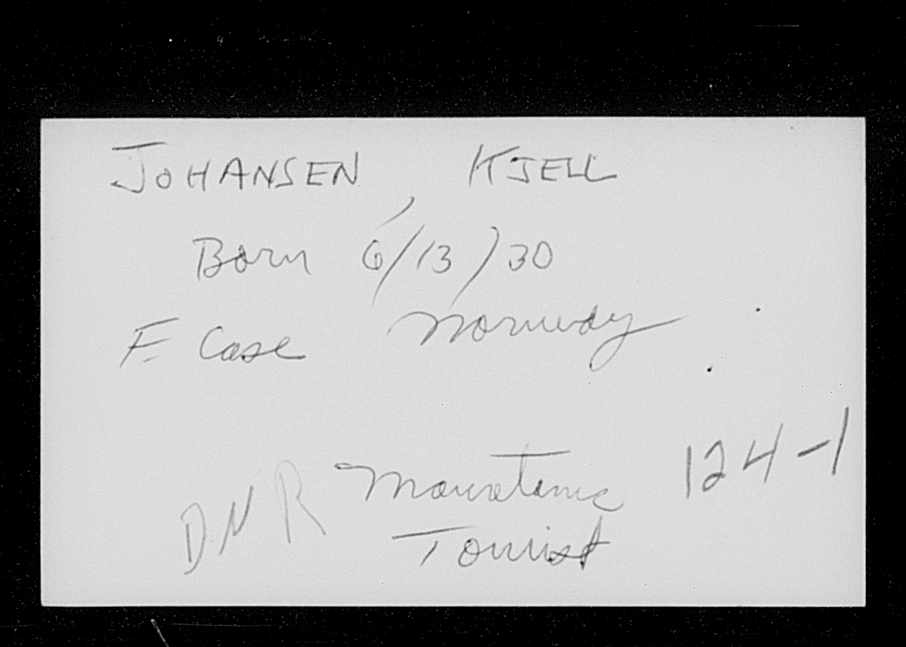 JOHANSEN, KJELL
Born 6/13/30
F. Case Norway
DNR Mauretania 124-1
Tourist